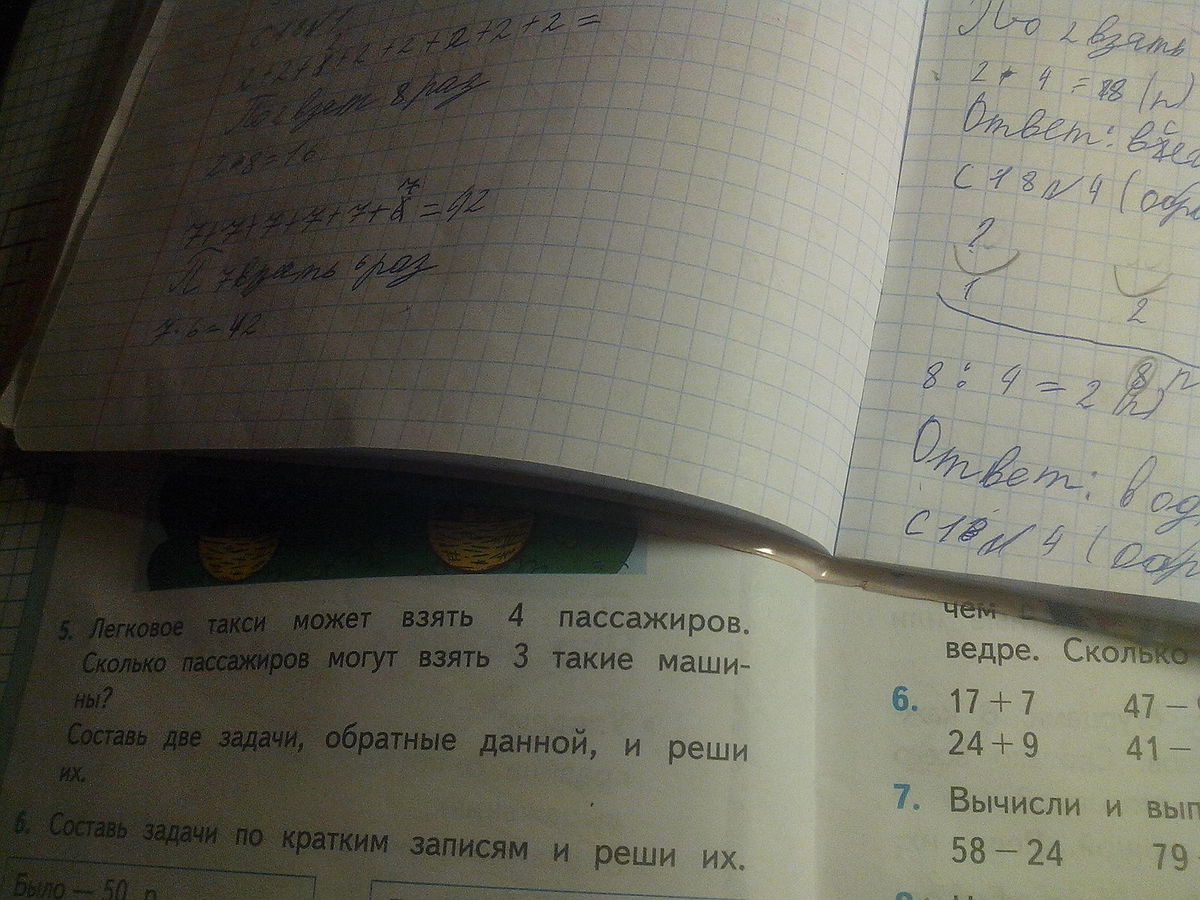 2+2+2+2+2+2+2+2=
По 2 взять 8 раз
2·8=16
7+7+7+7+7+7=42
П 7 взять 6 раз
7·6=42
По 2 взять
2 · 4 = 8 (п)
Ответ:
С 18 N 4 (обр
2
1
2
8 п
8 : 4 = 2 (п)
Ответ: в од
С 18 N 4 (обр
5. Легковое такси может взять 4 пассажиров.
Сколько пассажиров могут взять 3 такие маши-
ны?
Составь две задачи, обратные данной, и реши
их.
6. Составь задачи по кратким записям и реши их.
Было — 50 р.
чем
ведре. Сколько
6. 17 + 7 47 −
24 + 9 41 −
7. Вычисли и вып
58 − 24 79